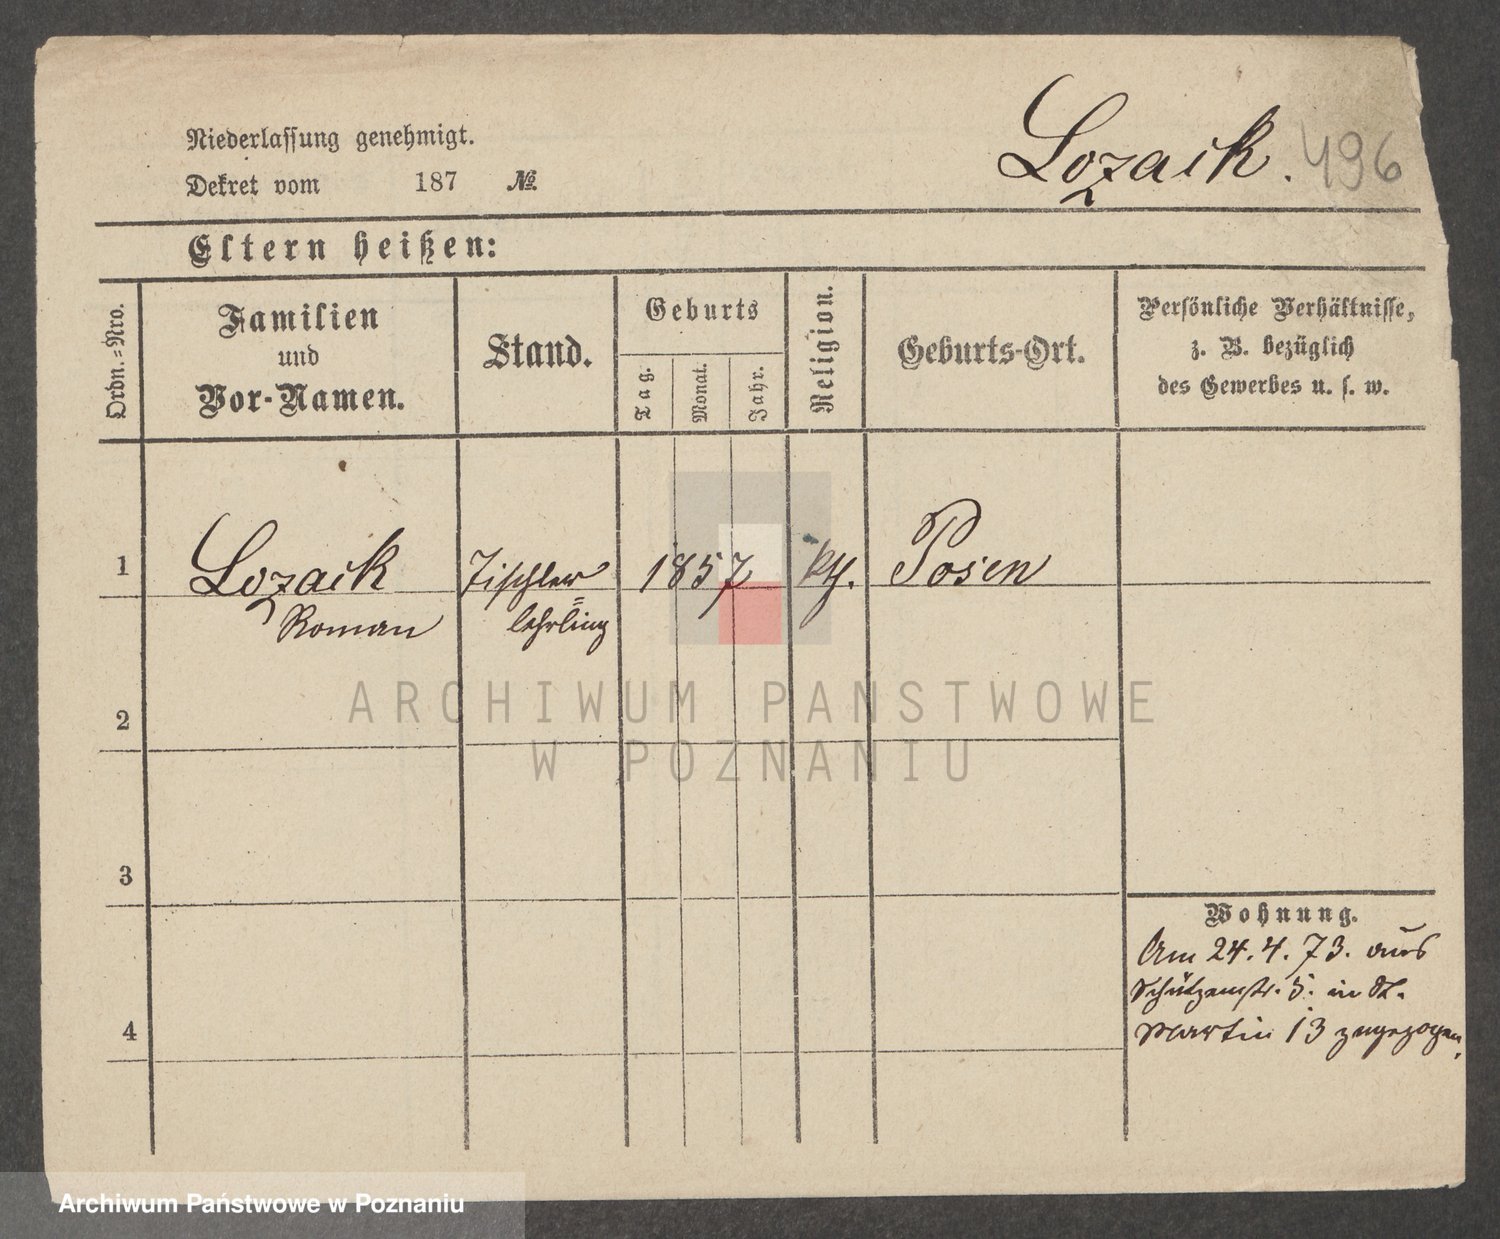 Lozaik. 496
Niederlassung genehmigt.
Dekret vom 187 №
Eltern heißen:
Ordn.=Nro.
Familien
und
Vor-Namen.
Stand.
Geburts
Tag.
Monat.
Jahr.
Religion.
Geburts-Ort.
Persönliche Verhältnisse,
z. B. bezüglich
des Gewerbes u. s. w.
1 Lozaik Tischler= 1857 kth. Posen
Roman lehrling
2
3
4
Wohnung.
Am 24.4.73. aus
Schützenstr. 5. in St.
Martin 13 zugezogen.
ARCHIWUM PANSTWOWE
W POZNANIU
Archiwum Państwowe w Poznaniu